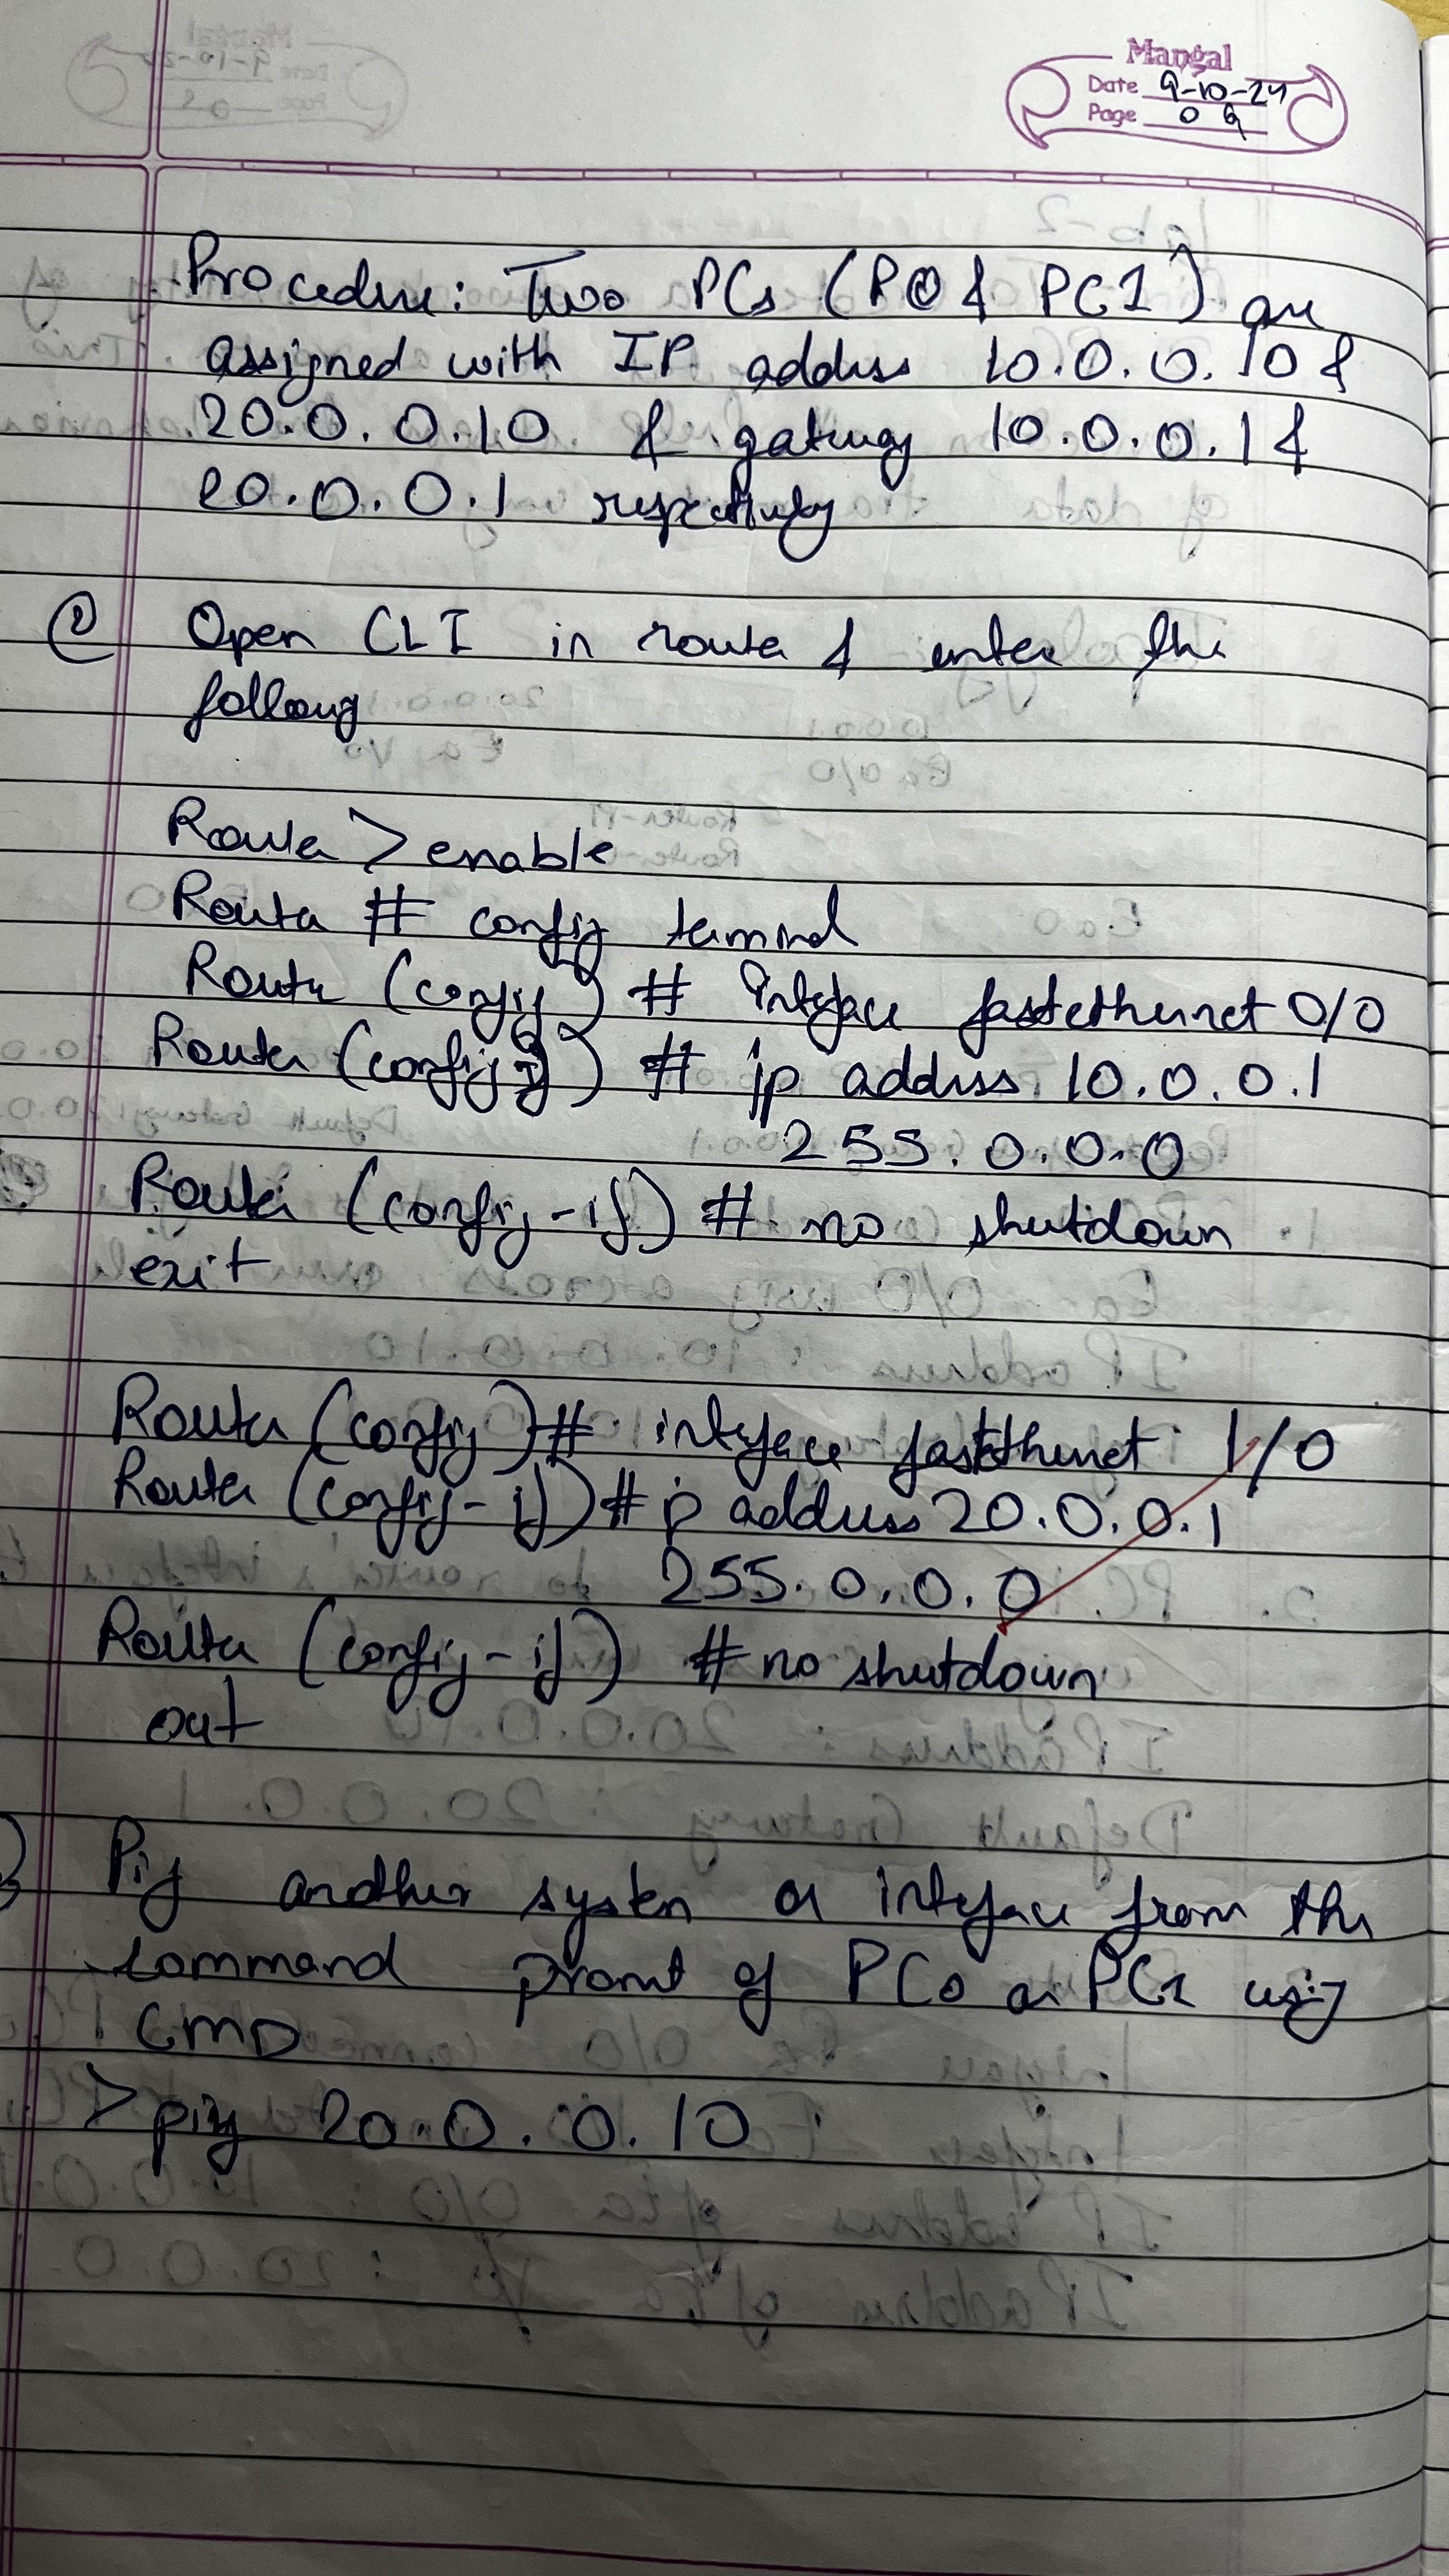 Mangal
Date 9-10-24
Page 09
Procedure: Two PCs (PC0 & PC1) are
assigned with IP address 10.0.0.10 &
20.0.0.10 & gateway 10.0.0.1 &
20.0.0.1 respectively
② Open CLI in router & enter the
following
Router > enable
Router # config terminal
Router (config) # interface fastethernet 0/0
Router (config) # ip address 10.0.0.1
255.0.0.0
Router (config-if) # no shutdown
exit
Router (config) # interface fastethernet 1/0
Router (config-if) # ip address 20.0.0.1
255.0.0.0
Router (config-if) # no shutdown
out
Ping another system or interface from the
command promt of PC0 or PC1 using
CMD
> ping 20.0.0.10